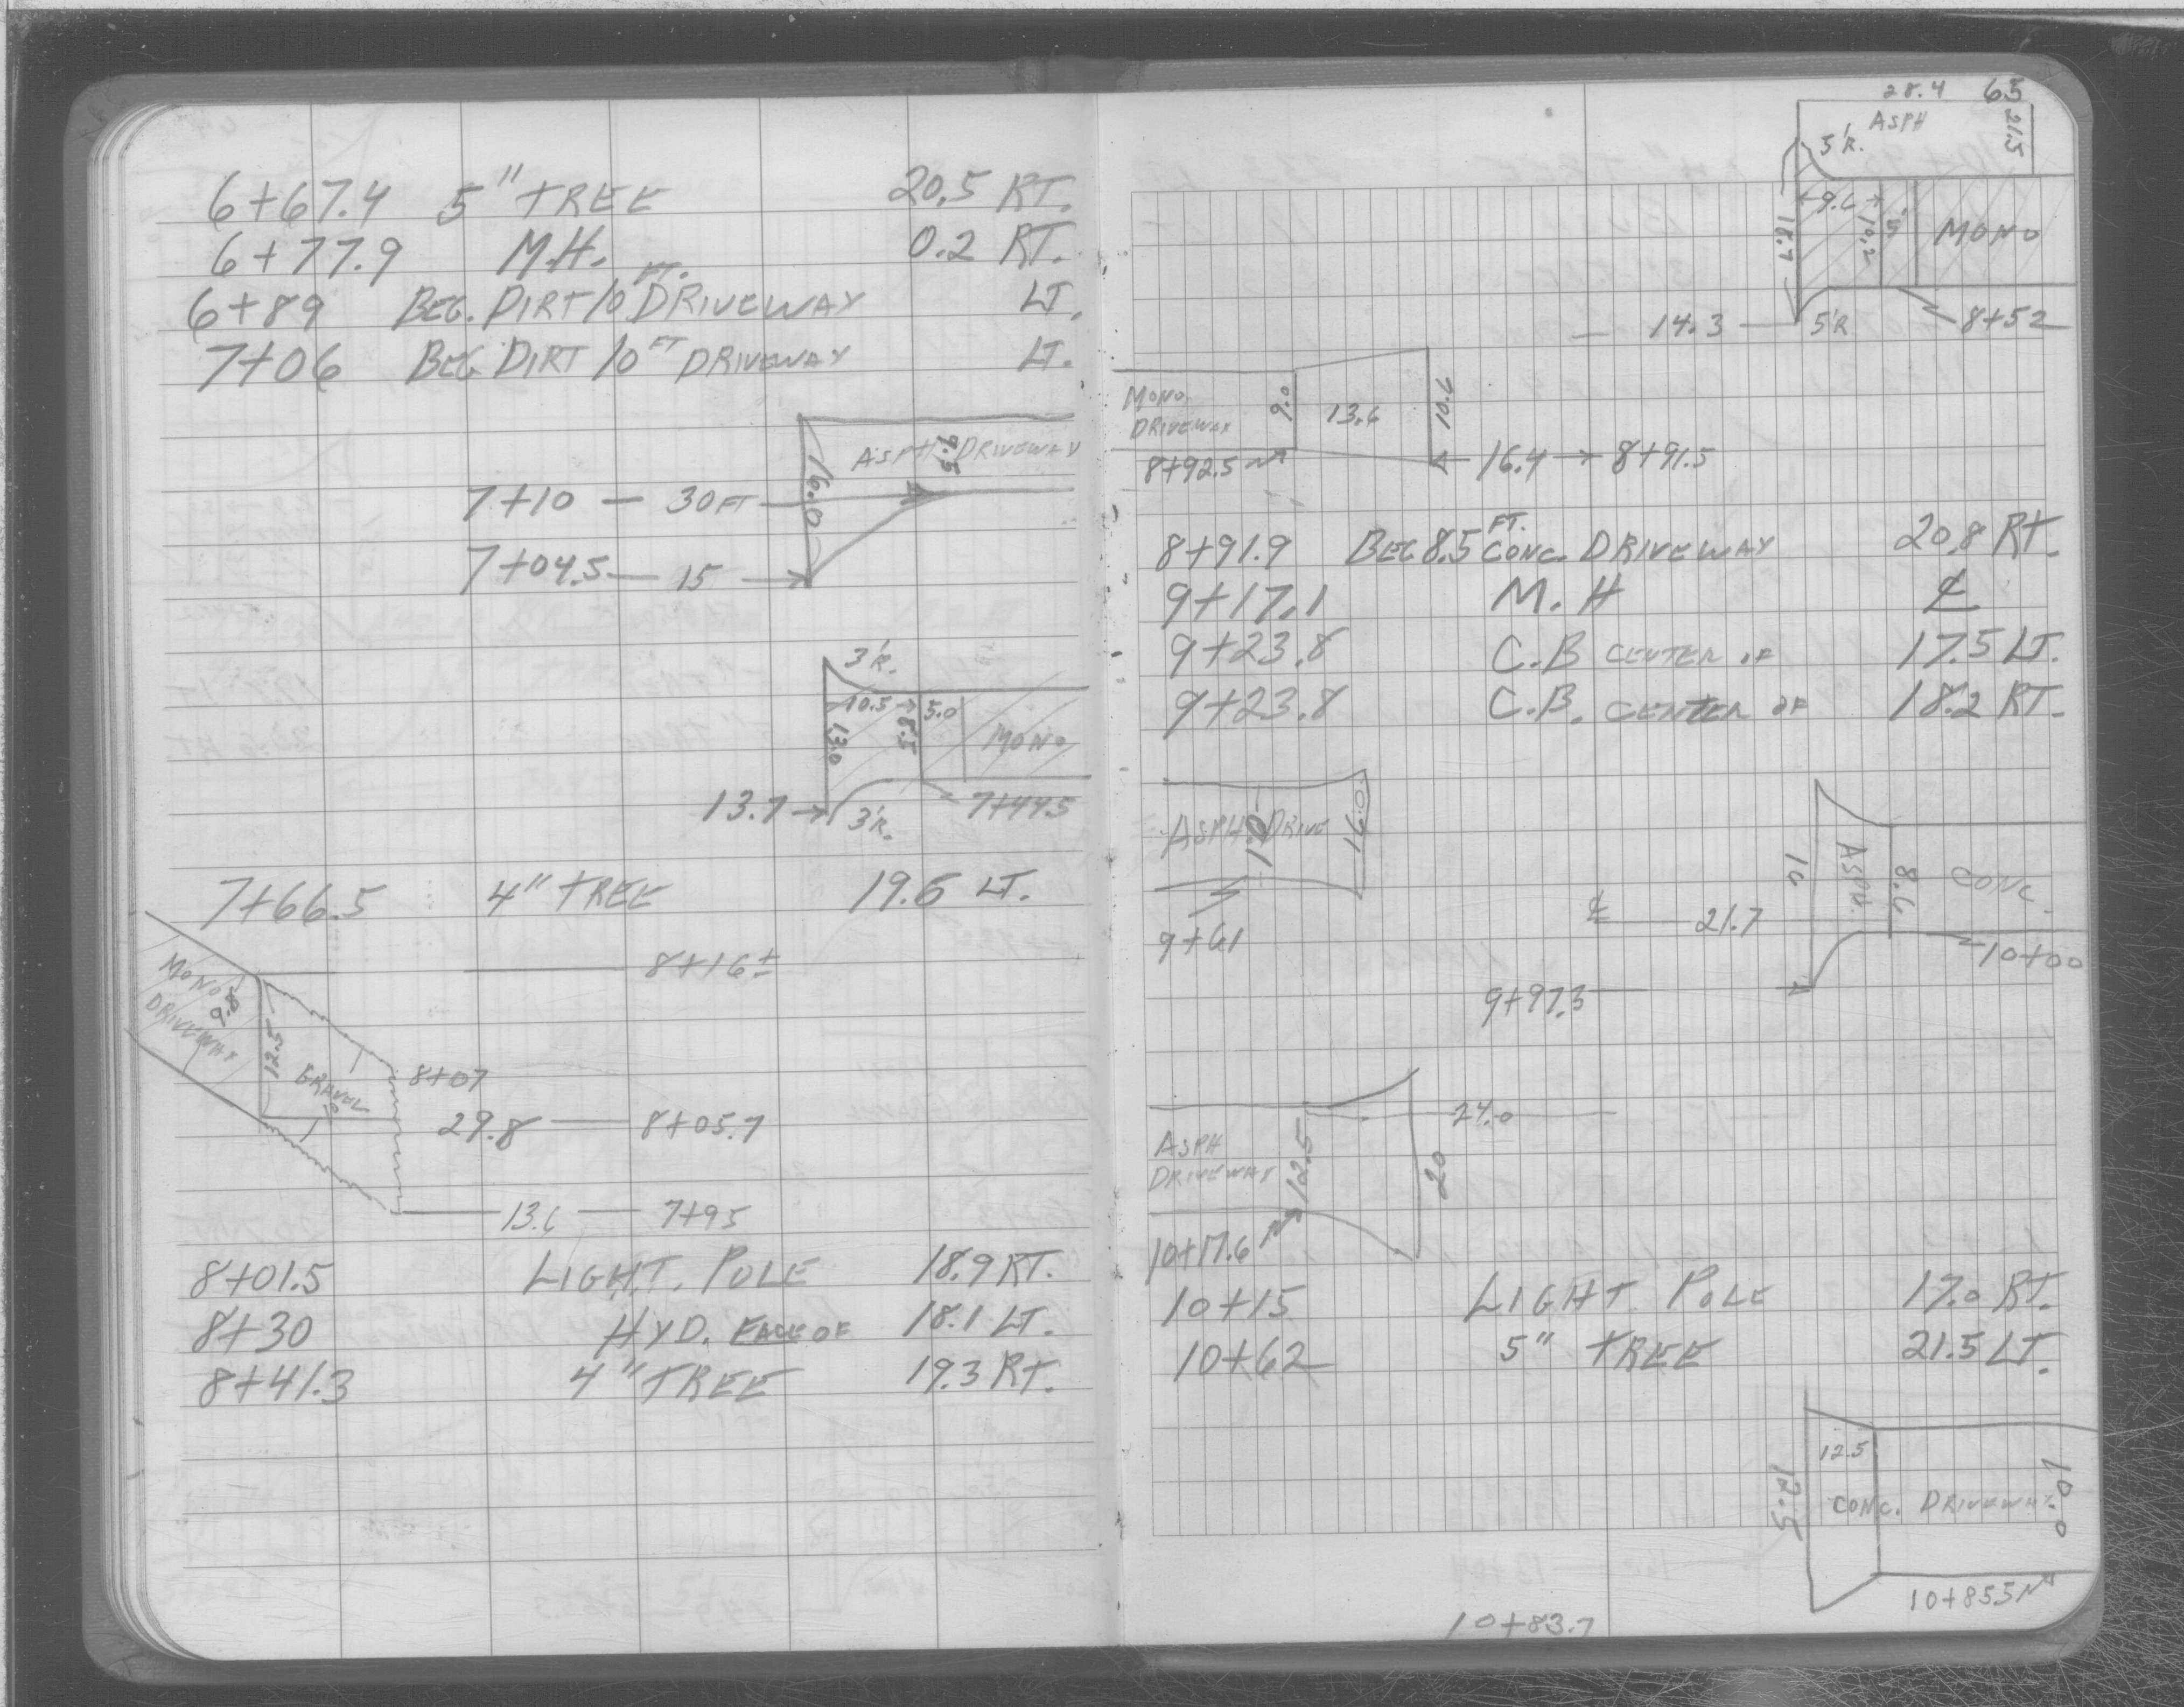 6+67.4 5" TREE 20.5 RT.
6+77.9 M.H. 0.2 RT.
6+89 BEG. DIRT 10 FT. DRIVEWAY LT.
7+06 BEG DIRT 10 FT DRIVEWAY LT.
ASPH. DRIVEWAY
9.5
16.0
7+10 — 30 FT
7+04.5 — 15
3'R.
10.5 5.0
8.5
13.0
MONO
13.7
3'R.
7+44.5
7+66.5 4" TREE 19.6 LT.
8+16±
MONO
DRIVEWAY
9.8
12.5
GRAVEL
10
8+07
29.8 — 8+05.7
13.6 — 7+95
8+01.5 LIGHT. POLE 18.9 RT.
8+30 HYD. FACE OF 18.1 LT.
8+41.3 4" TREE 19.3 RT.
65
28.4
ASPH
21.5
5'R.
9.6
18.7
10.2
MONO
14.3
5'R
8+52
MONO
DRIVEWAY
9.0
13.6
10.6
8+92.5
16.4 8+91.5
8+91.9 BEG 8.5 FT. CONC. DRIVEWAY 20.8 RT.
9+17.1 M.H ℄
9+23.8 C.B CENTER OF 17.5 LT.
9+23.8 C.B. CENTER OF 18.2 RT.
ASPH. DRIVE
16.0
9+61
16
ASPH.
8.6
CONC.
℄ — 21.7
10+00
9+97.3
24.0
ASPH
DRIVEWAY
12.5
20
10+17.6
10+15 LIGHT POLE 17.0 RT.
10+62 5" TREE 21.5 LT.
12.5
12.5
CONC. DRIVEWAY
10.0
10+85.5
10+83.7